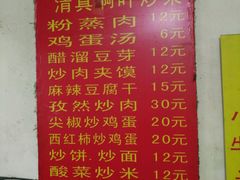 粉蒸肉 12元
鸡蛋汤 6元
醋溜豆芽 12元
炒肉夹馍 12元
麻辣豆腐干 15元
孜然炒肉 30元
尖椒炒鸡蛋 20元
西红柿炒鸡蛋 20元
炒饼.炒面 12元
酸菜炒米 12元